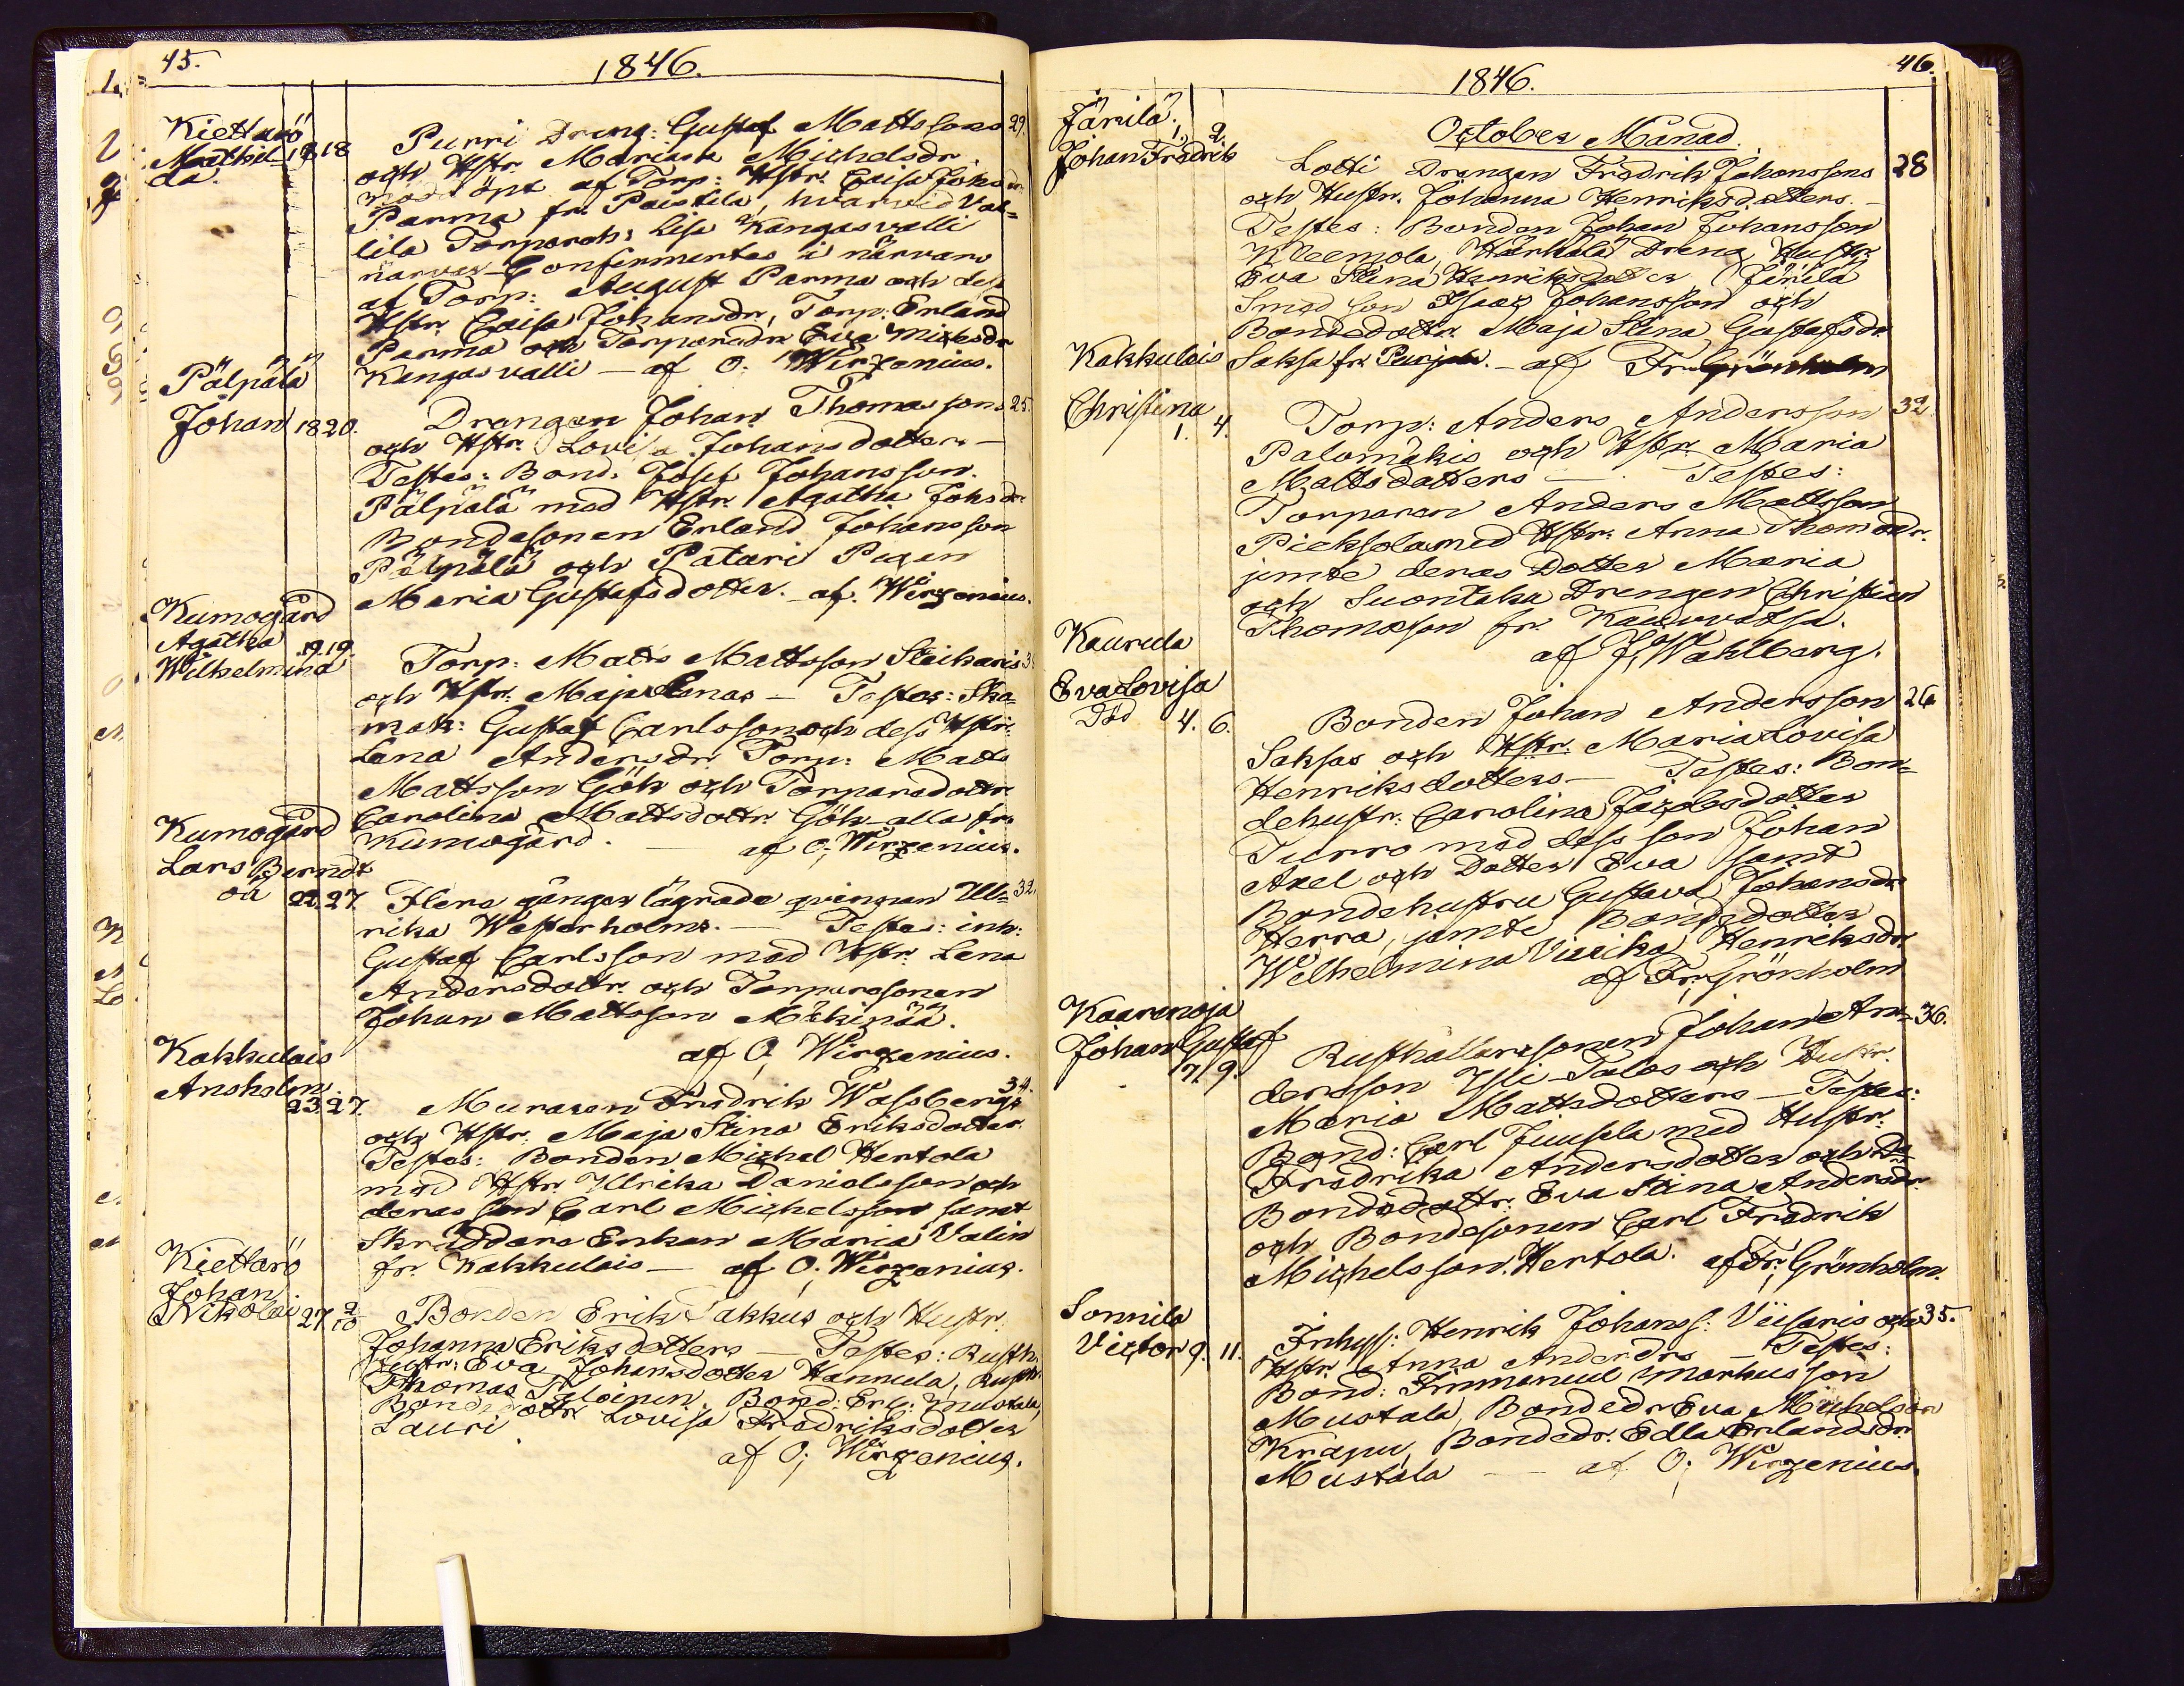 45.
1846.
Kiettarö
Mathil
da.
18
Purri Dreng: Gustaf Mattssons
29.
och Hstr. Mariana Michelsdr.
nöddöpt af Torp: Hstr. Caisa Johsdr
Parma fr. Paistila, hvarvid Val=
lila Torpareh: Lisa Kangasvalli
närvar Confirmertes i närvaro
af Torp: August Parma och dess
Hstr. Caisa Johansdr, Torp: Erland
Parma och Torparedr Eva Mickesdr
Kangasvalli — af O. Wirzenius.
Pälpälä
Johan 18 20.
Drengen Johan Thomassons
25.
och Hstr. Lovisa Johansdotters —
Testes: Bond: Josef Johansson
Pälpälä med Hstr. Agatha Johsdr.
Bondesonen Erland Johansson
Pälpälä och Patari Pigan
Maria Gustafsdotter. af. Wirzenius.
Kumogård
Agatha
Wilhelmina
19. 19.
Torp: Matts Mattsson Steikaris
och Hstr. Maja Lenas — Testes: Sko=
mak: Gustaf Carlsson och dess Hstr.
Lena Andersdr. Torp: Matts
Mattsson Gök och Torparedottr.
Carolina Mattsdottr. Gök alla fr.
Kumogård. — af O. Wirzenius.
Kumogård
Lars Berndt
oä 22. 27.
Flere gånger lägrade qvinnan Ul=
32.
rika Westerholms. — Testes: inh:
Gustaf Carlsson med Hstr. Lena
Andersdottr. och Torparesonen
Johan Mattsson Mäkinää.
af O. Wirzenius.
Kakkulais
Anshelm
23. 27.
34.
Muraren Fredrik Wassbergs
och Hstr. Maja Stina Eriksdotter.
Testes: Bonden Michel Hertola
med Hstr. Ulrika Danielsson och
deras son Carl Michelsson samt
Skräddare Enkan Maria Valin
fr. Kakkulais — af O. Wirzenius.
Kiettarö
Johan
Nikolai 27. 2/10
Bonden Erik Jakkus och Hustr.
Johanna Eriksdotters — Testes: Rusth.
Hustr: Eva Johansdotter Hannula, Rusth.
Thomas Bond: Erl: Mustala,
Bondedottr. Lovisa Fredriksdotter
Lauri
af O. Wirzenius.
46.
1846.
October Månad.
Järilä.
1. 2.
Johan Fredrik
Lotti Drengen Fredrik Johanssons
28
och Hustr. Johanna Henriksdotters. —
Testes: Bonden Johan Johansson
Neemola, Härkälä Dreng Hustr.
Eva Stina Henriksdotter Järilä
Smed son Isaac Johansson och
Bondedottr. Maja Stina Gustafsdr
Saksa fr. Purjala. — af Fr. Grönholm
Kakkulais
Christina
1. 4.
Torp: Anders Andersson
32.
Palomäkis och Hstr. Maria
Mattsdotters — Testes:
Torparen Anders Mattsson
Pieksola med Hstr. Anna Thomadr.
jemte deras Dotter Maria
och Suontaka Drengen Christian
Thomasson fr. Kauvatsa.
af J. W. Wahlberg.
Kaurula
Eva Lovisa
Död 4. 6.
Bonden Johan Andersson
26
Saksas och Hstr. Maria Lovisa
Henriksdotters — Testes: Bon=
dehustr: Carolina Jacobsdotter
Turro med dess son Johan
Axel och Dotter Eva samt
Bondehustru Gustava Johansdr
Herra, jemte Bondedotter
Wilhelmina Henriksdr.
af Fr. Grönholm
Kaarenoja
Johan Gustaf
7. 9.
Rusthållaresonen Johan An=
36.
dersson Yli-Talos och Hustr.
Maria Mattsdotters — Testes:
Bond: Carl Juusela med Hustr.
Fredrika Andersdotter och De
Bondedottr. Eva Stina Andersdr.
och Bondesonen Carl Fredrik
Michelsson Hertola. af Fr. Grönholm.
Sonnila
Victor 9. 11.
Inhyss: Henrik Johanss: Viisaris och
35.
Hstr. Anna Andersdrs — Testes:
Bond: Immanuel Markusson
Mustala, Bondedr Eva Michelsdr
Krapu, Bondedr. Edla Erlandsdr
Mustala — af O. Wirzenius.